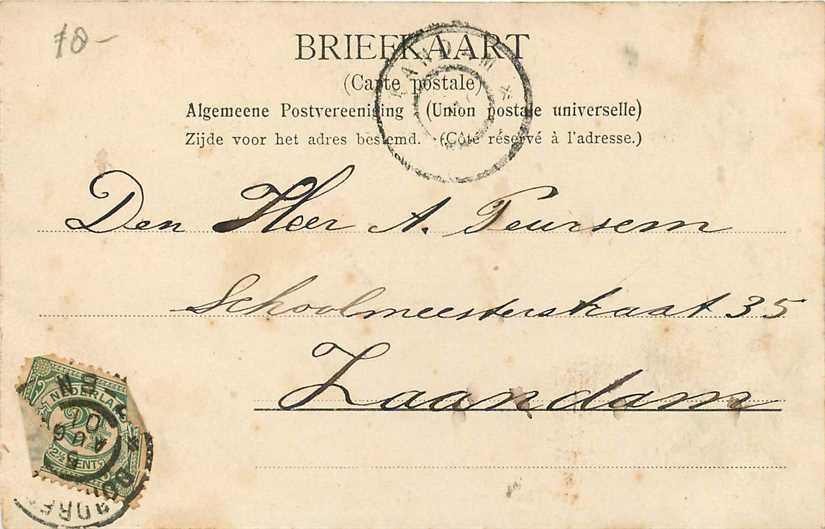 10-
BRIEFKAART
(Carte postale)
Algemeene Postvereeniging (Union postale universelle)
Zijde voor het adres bestemd. (Côté réservé à l'adresse.)
Den Heer A. Peursem
Schoolmeesterstraat 35
Zaandam
ZAANDAM
NEDERLAND
2½
2½ CENT
AUG